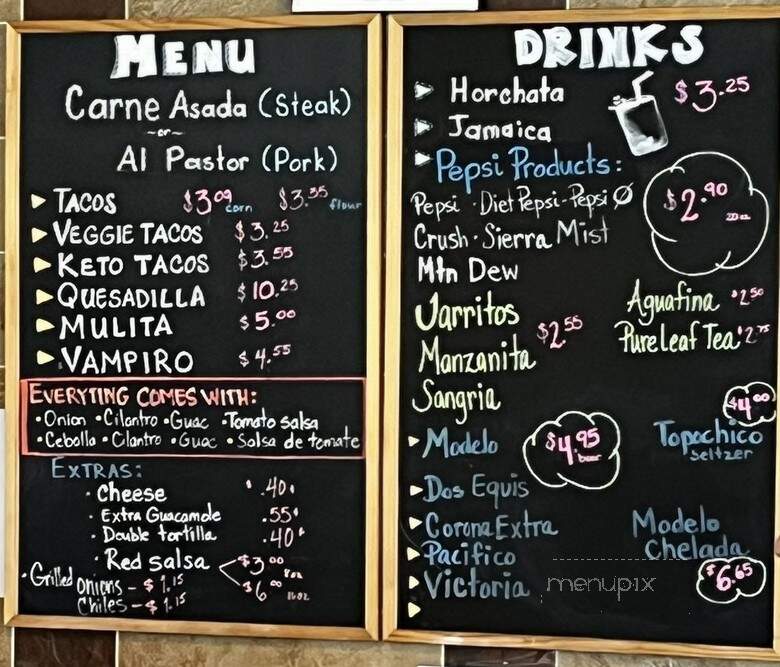 MENU
Carne Asada (Steak)
-or-
Al Pastor (Pork)
TACOS $3.09 corn $3.35 flour
VEGGIE TACOS $3.25
KETO TACOS $3.55
QUESADILLA $10.25
MULITA $5.00
VAMPIRO $4.55
EVERYTING COMES WITH:
•Onion •Cilantro •Guac •Tomato salsa
•Cebolla •Cilantro •Guac •Salsa de tomate
EXTRAS:
• Cheese .40¢
• Extra Guacamole .55¢
• Double tortilla .40¢
• Red salsa $3.00 8oz
$6.00 16oz
•Grilled Onions - $1.15
Chiles - $1.15
DRINKS
Horchata $3.25
Jamaica
Pepsi Products:
Pepsi • Diet Pepsi - Pepsi Ø $2.90 20oz
Crush • Sierra Mist
Mtn Dew
Jarritos $2.55
Manzanita
Sangria
Aguafina $2.50
Pureleaf Tea $2.75
Modelo $4.95 beer
Dos Equis
Corona Extra
Pacifico
Victoria
$4.00
Topochico
seltzer
Modelo
Chelada
$6.65
menupix